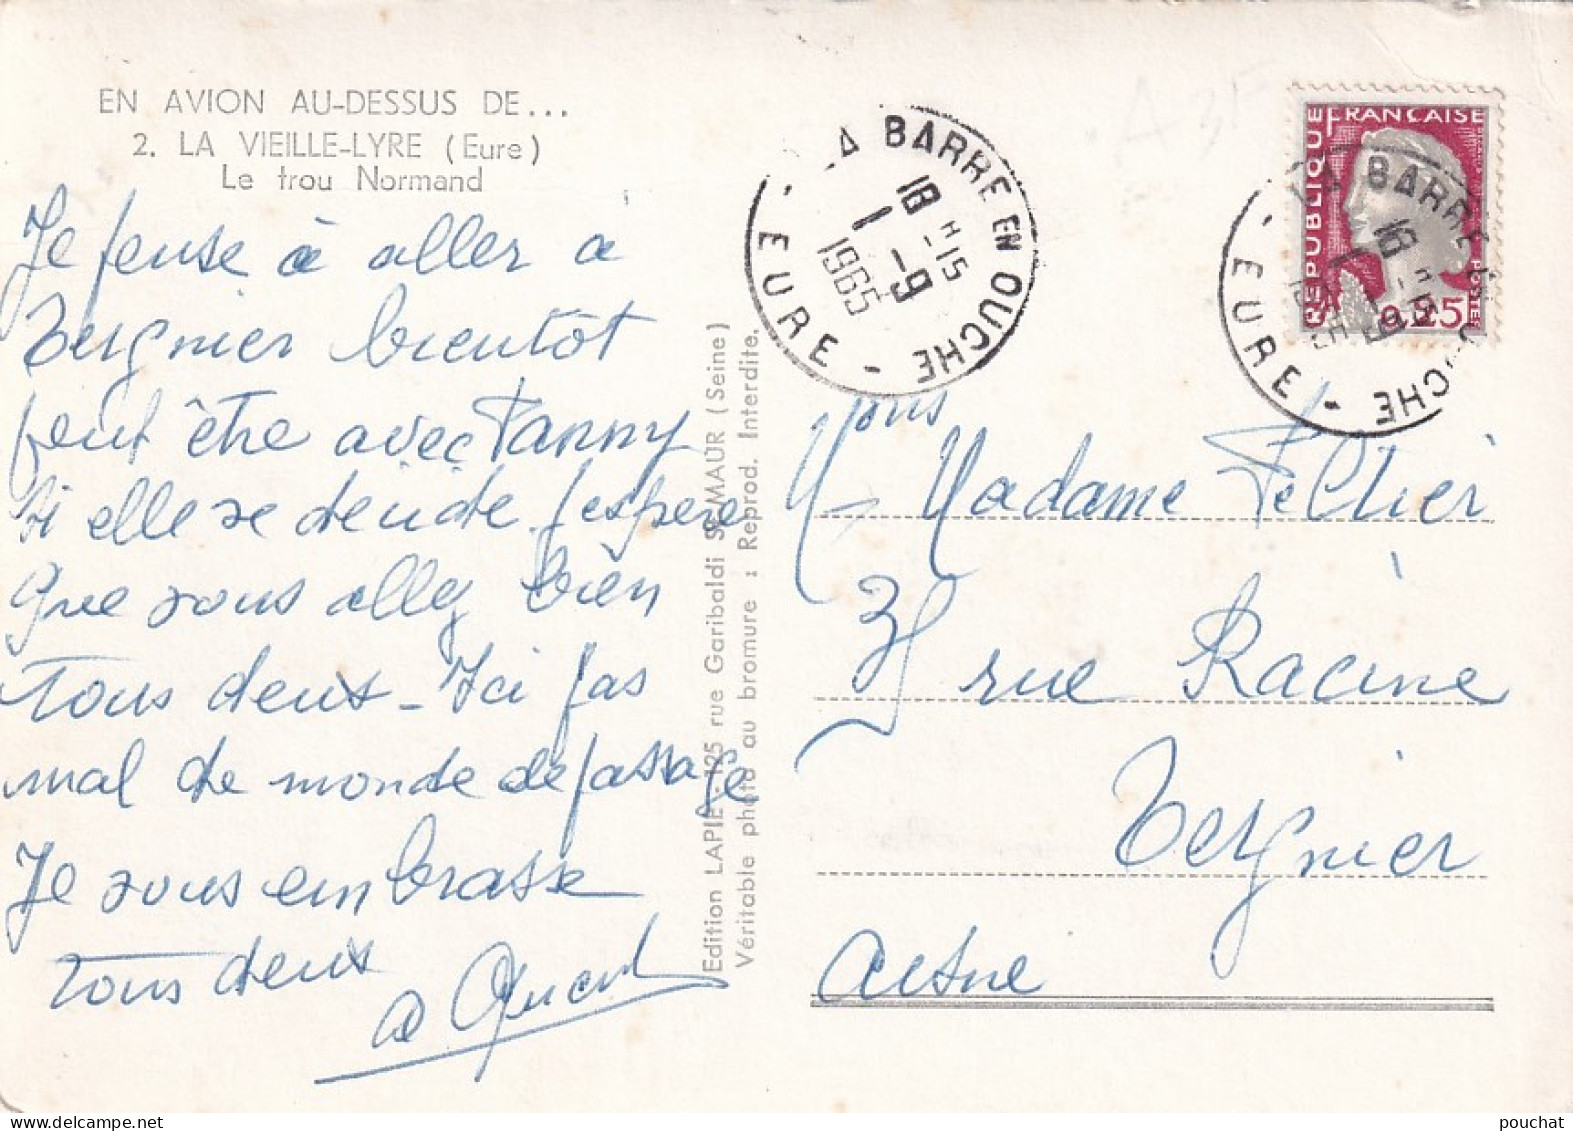 EN AVION AU-DESSUS DE...
2. LA VIEILLE-LYRE (Eure)
Le trou Normand
Je pense à aller a
Tergnier bientot
peut être avec Fanny
si elle se décide. J'espère
que vous allez bien
tous deux - Ici pas
mal de monde de passage
Je vous embrasse
tous deux
Edition LAPIE, 125 rue Garibaldi St MAUR (Seine)
Véritable photo au bromure : Reprod. Interdite.
LA BARRE EN OUCHE
18 H 15
1 - 9
1965
- EURE -
REPUBLIQUE FRANCAISE
POSTES
0,25
LA BARRE EN OUCHE
18 H 15
1 - 9
1965
- EURE -
Madame Peltier
rue Racine
Tergnier
Aisne
pouchat